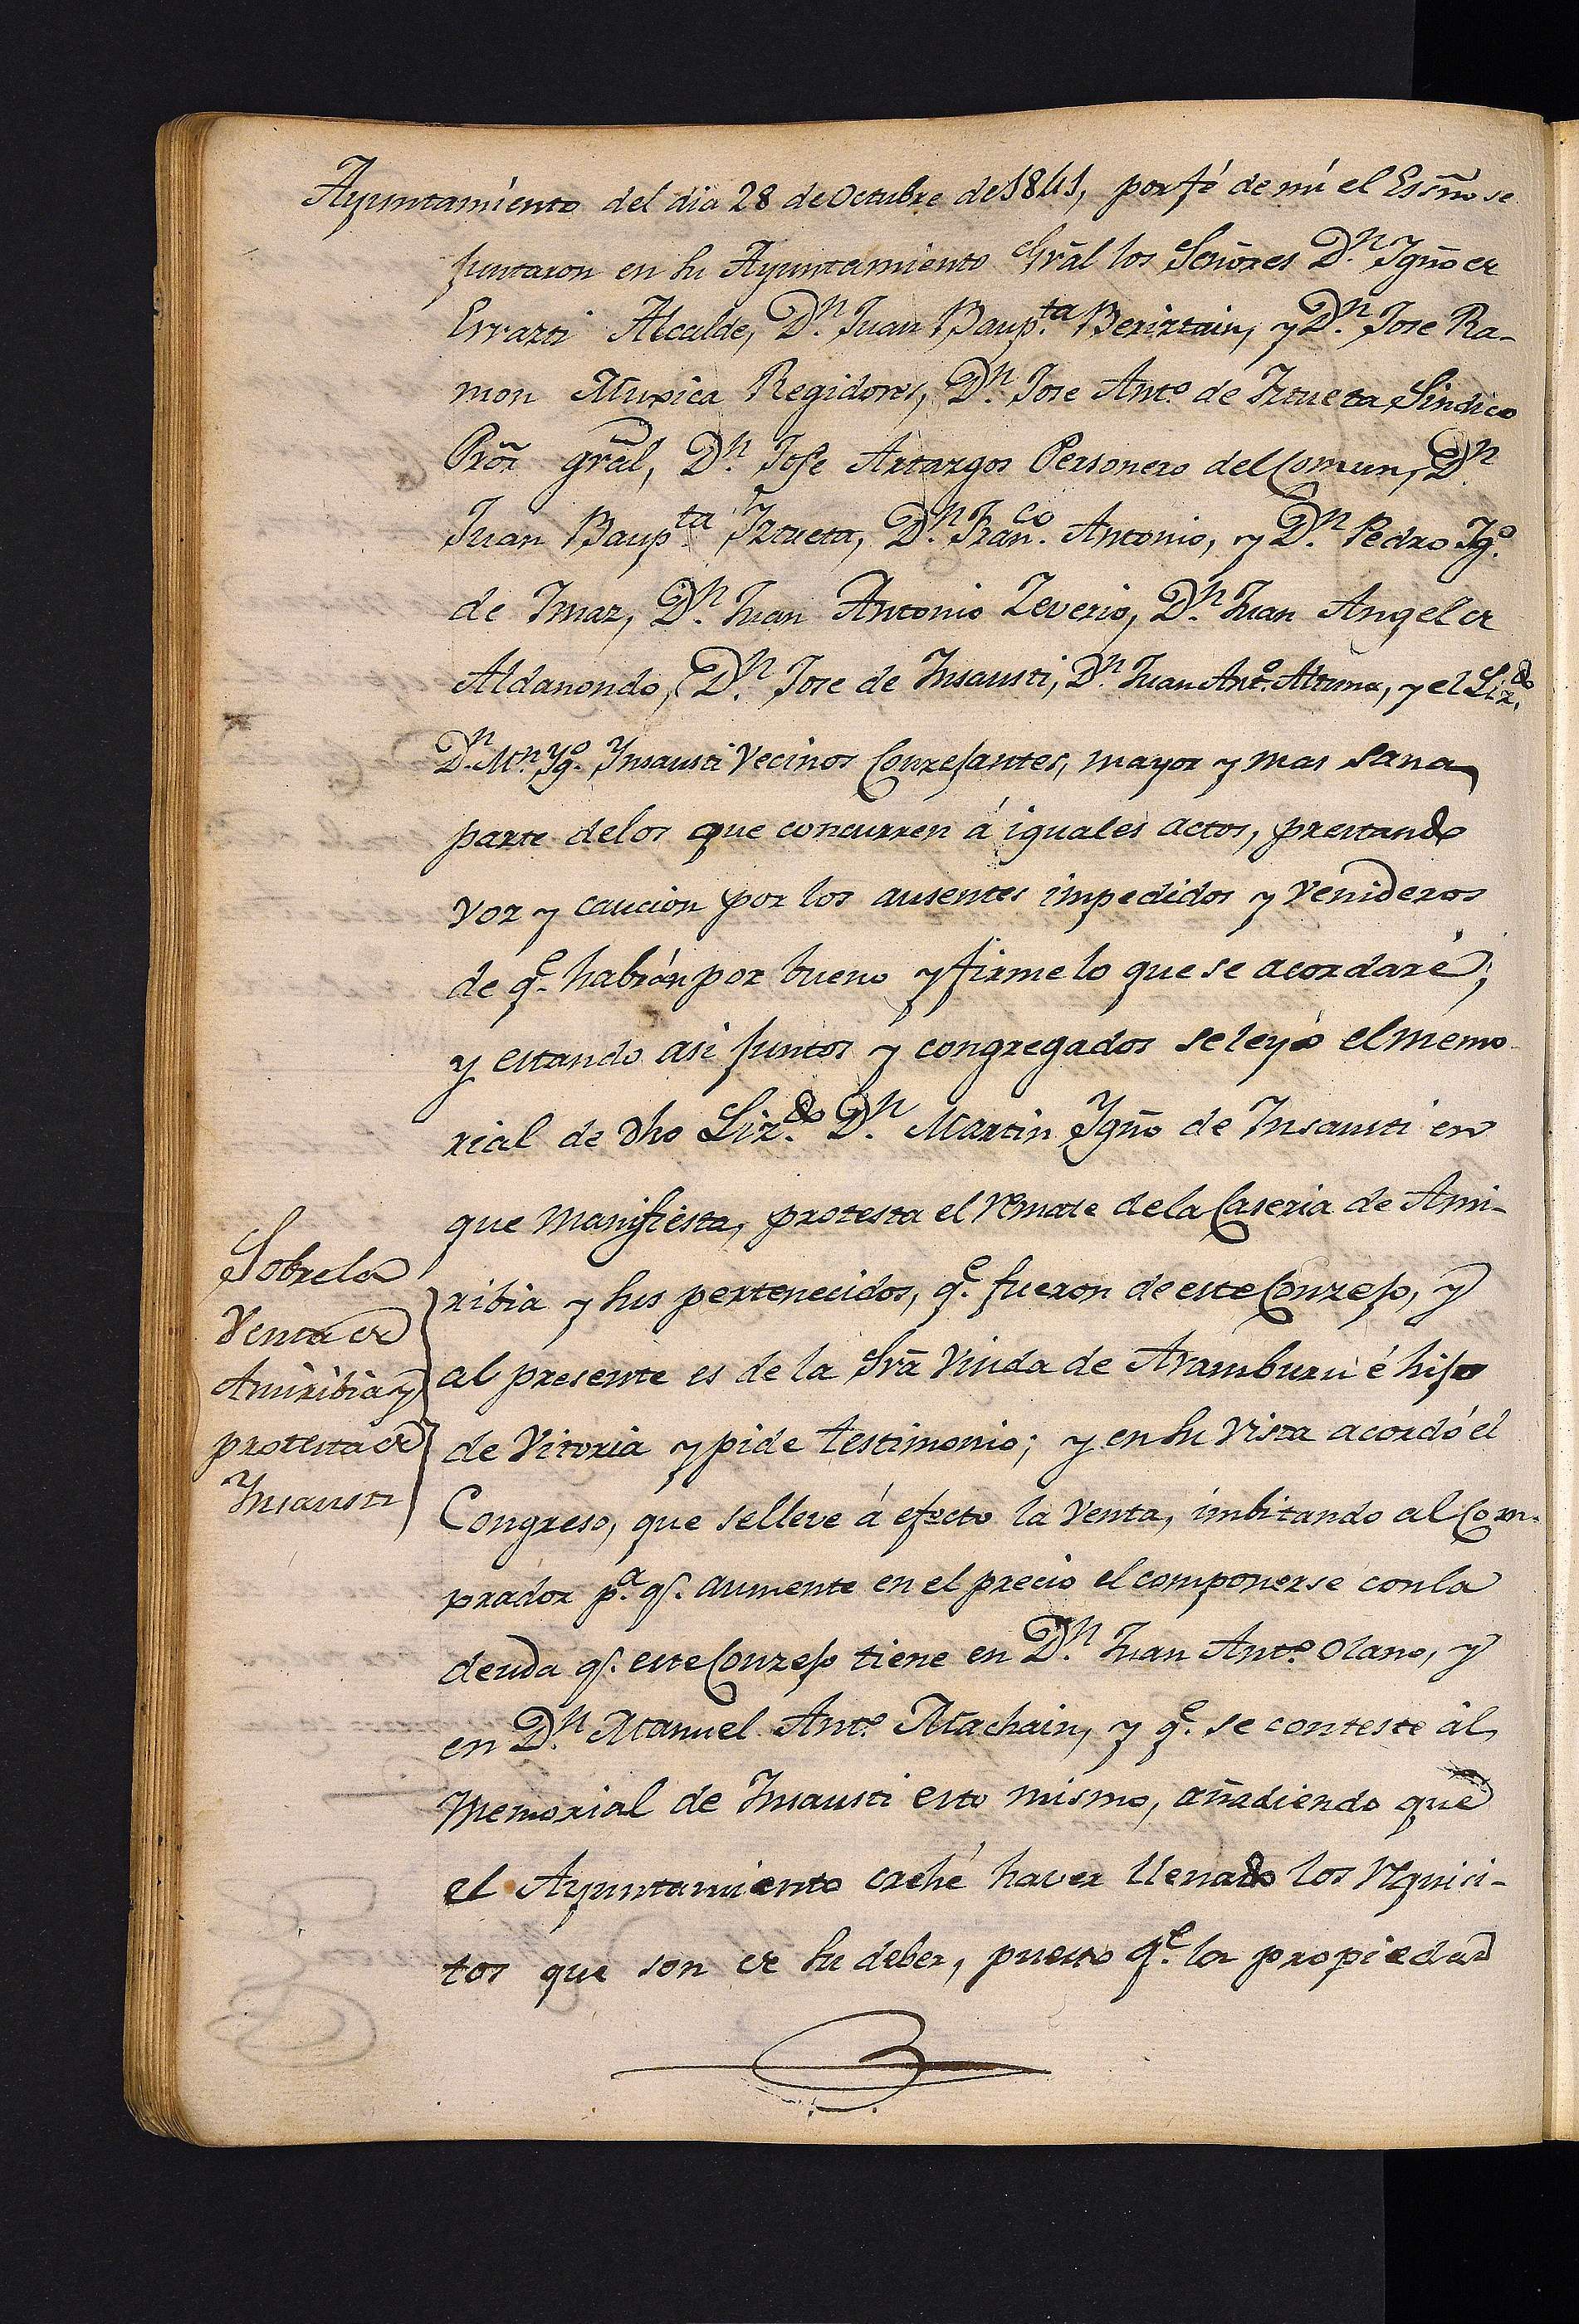 Ayuntamiento del dia 28 de Octubre de 1841, por fé de mi el Essño se
juntaron en su Ayuntamiento Grãl los Señores Dn. Ygño de
Errazti Alcalde, Dn. Juan Baupta. Beriztain, y Dn. Jose Ra-
mon Muxica Regidores, Dn. Jose Anto. de Iztueta Sindico
Prõr grãl, Dn. Jose Artargos Personero del Comun, Dn.
Juan Baupta. Iztueta, Dn. Franco. Antonio, y Dn. Pedro Ygo.
de Imaz, Dn. Juan Antonio Zeverio, Dn. Juan Angel de
Aldanondo, Dn. Jose de Insausti, Dn. Juan Anto. Altuna, y el Lizdo.
Dn. Mn. Ygo. Ynsausti Vecinos Conzejantes, mayor y mas sana
parte delos que concurren á iguales actos, prestando
voz y caucion por los ausentes impedidos y venideros
de qe. habrán por bueno y firme lo que se acordaré;
y estando asi juntos y congregados se leyó el memo
rial de dho Lizdo. Dn. Martin Ygño de Insausti en
que manifiesta, protesta el Remate dela Caseria de Ami-
ribia y sus pertenecidos, qe. fueron de este Conzejo, y
al presente es de la Srã Viuda de Aramburu é hijo
de Vitoria y pide testimonio; y en su vista acordó él
Congreso, que selleve á efecto la Venta, imbitando al Com-
prador pa. q. aumente en el precio el componerse conla
deuda q. este Conzejo tiene en Dn. Juan Anto. Olano, y
en Dn. Manuel Anto. Machain, y qe. se conteste ál
Memorial de Insausti esto mismo, añadiendo que
el Ayuntamiento crehé haver llenado los Requici-
tos que son de su deber, puesto qe. la propiedad
Sobre la
Venta de
Amiribia y
protesta de
Insausti